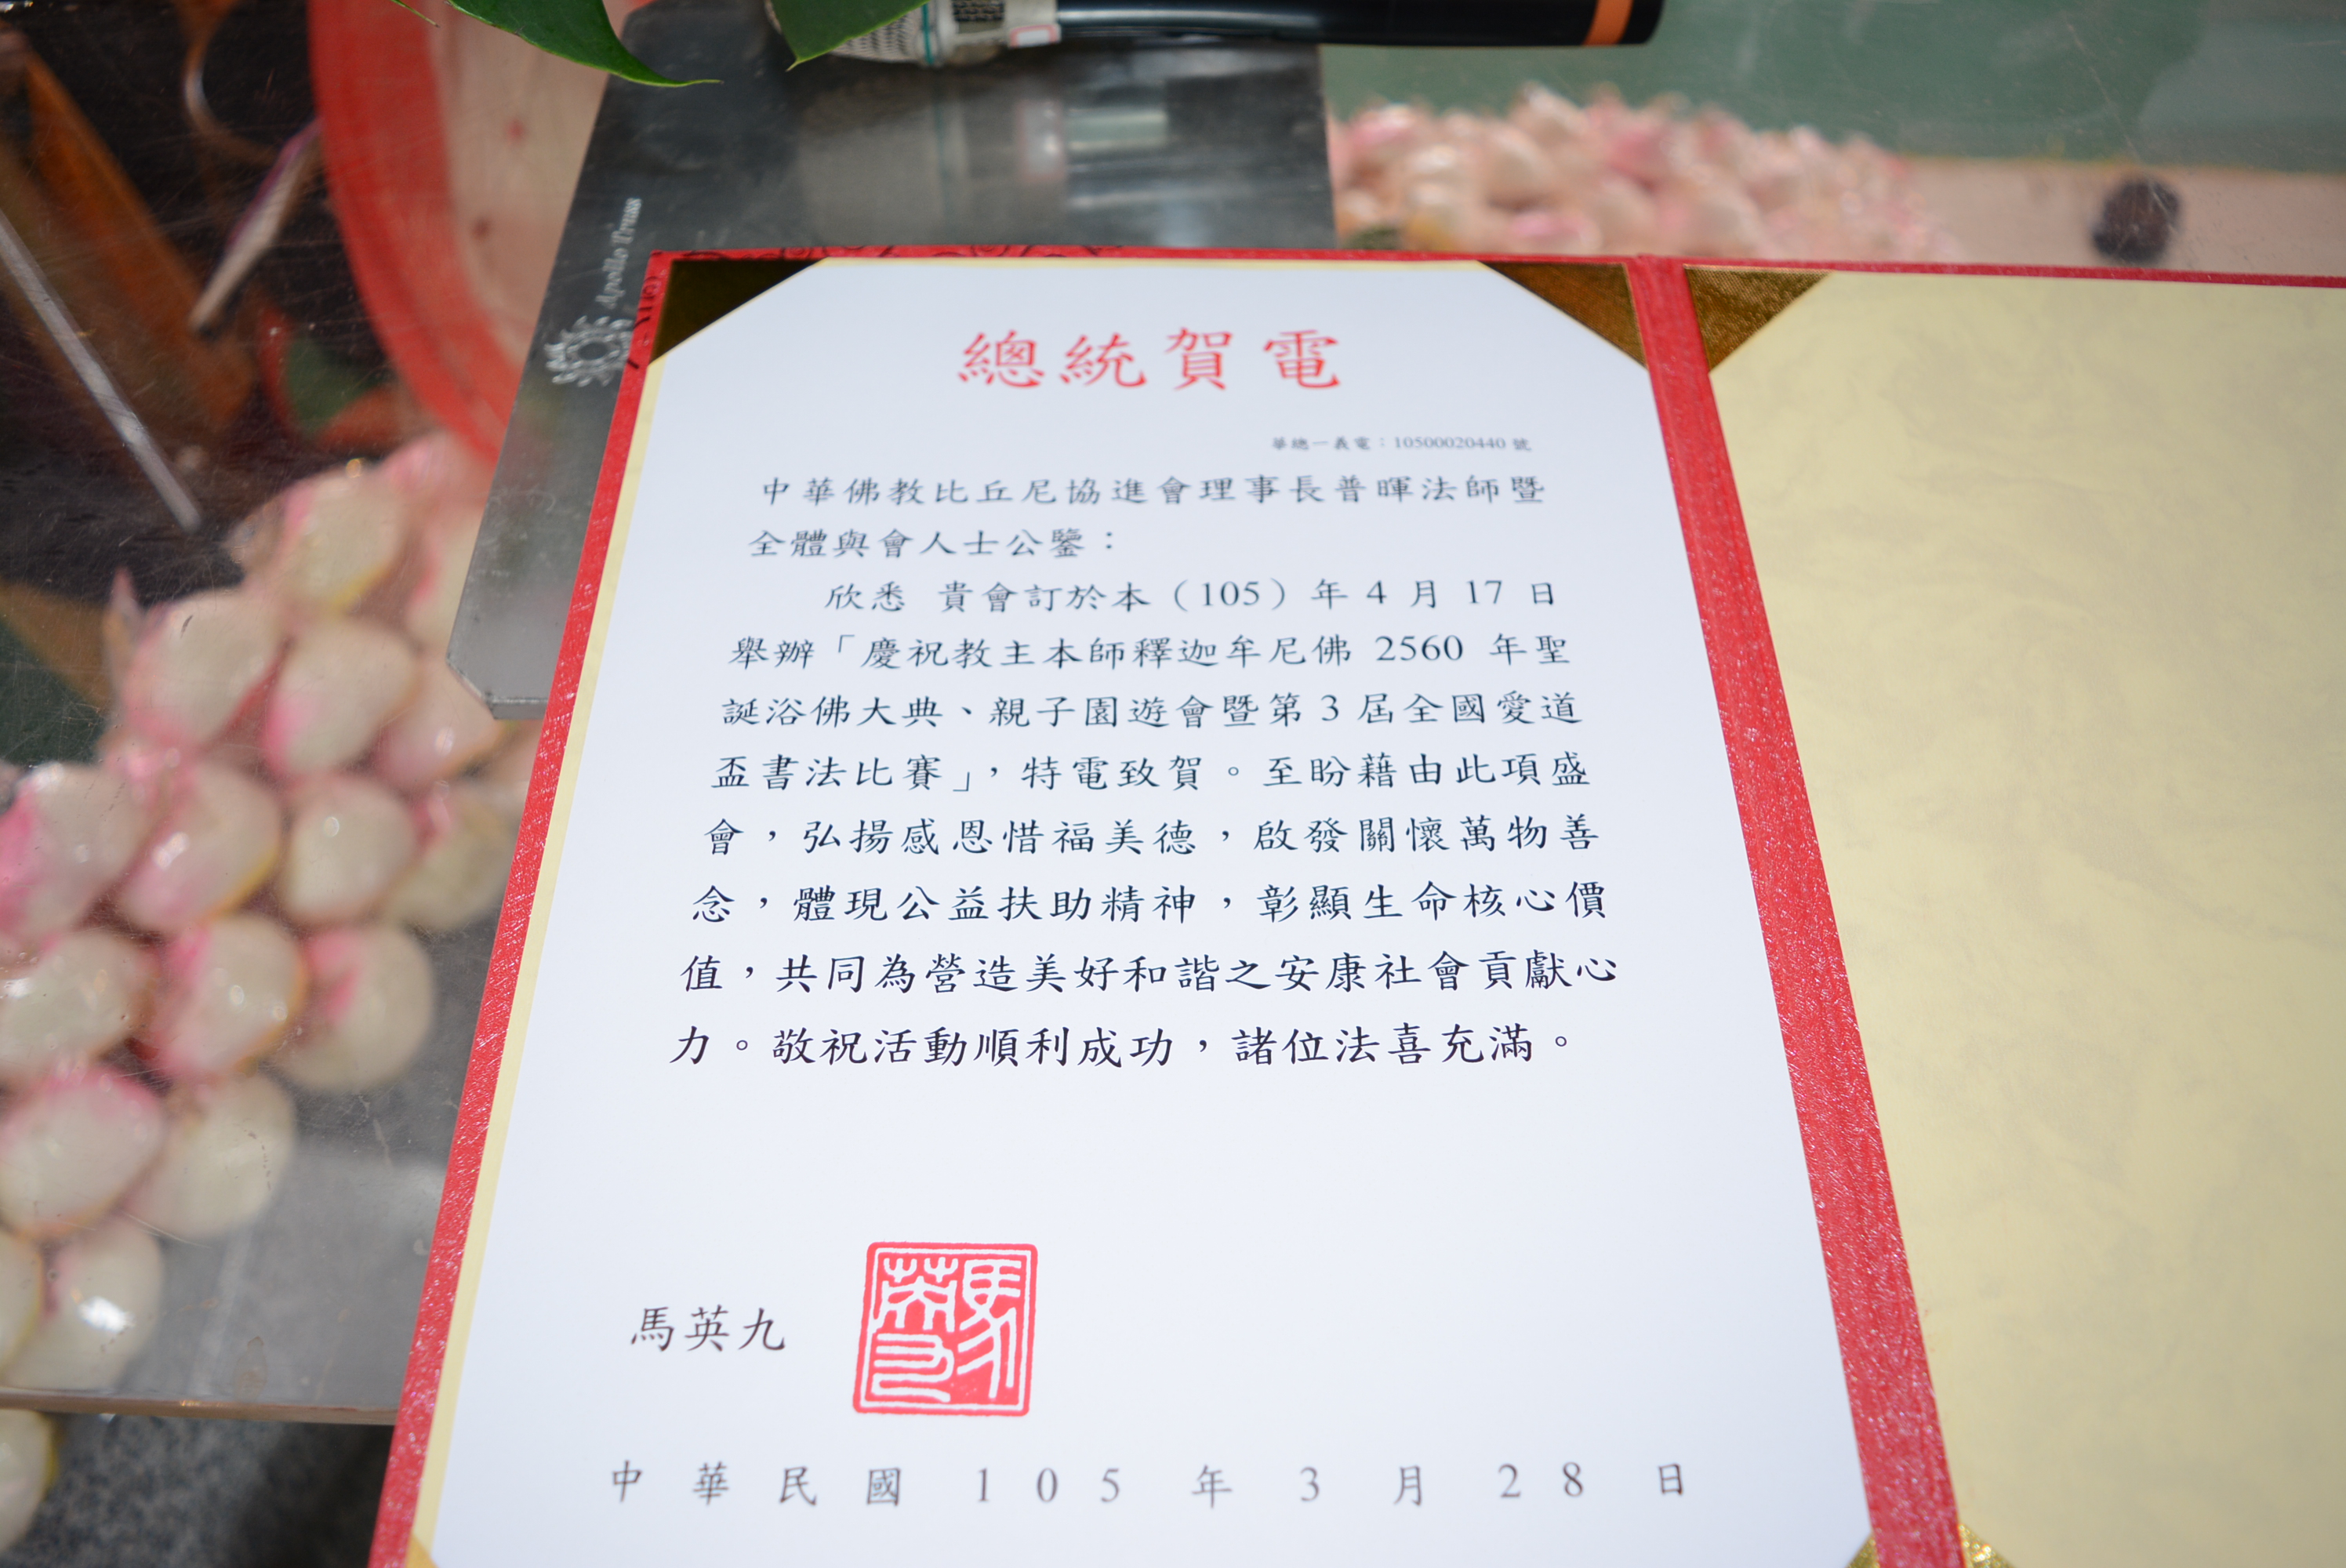 Apollo Truss
總統賀電
華總一義電：10500020440 號
中華佛教比丘尼協進會理事長普暉法師暨
全體與會人士公鑒：
欣悉 貴會訂於本（105）年 4 月 17 日
舉辦「慶祝教主本師釋迦牟尼佛 2560 年聖
誕浴佛大典、親子園遊會暨第 3 屆全國愛道
盃書法比賽」，特電致賀。至盼藉由此項盛
會，弘揚感恩惜福美德，啟發關懷萬物善
念，體現公益扶助精神，彰顯生命核心價
值，共同為營造美好和諧之安康社會貢獻心
力。敬祝活動順利成功，諸位法喜充滿。
馬英九
馬英九
中華民國 105 年 3 月 28 日